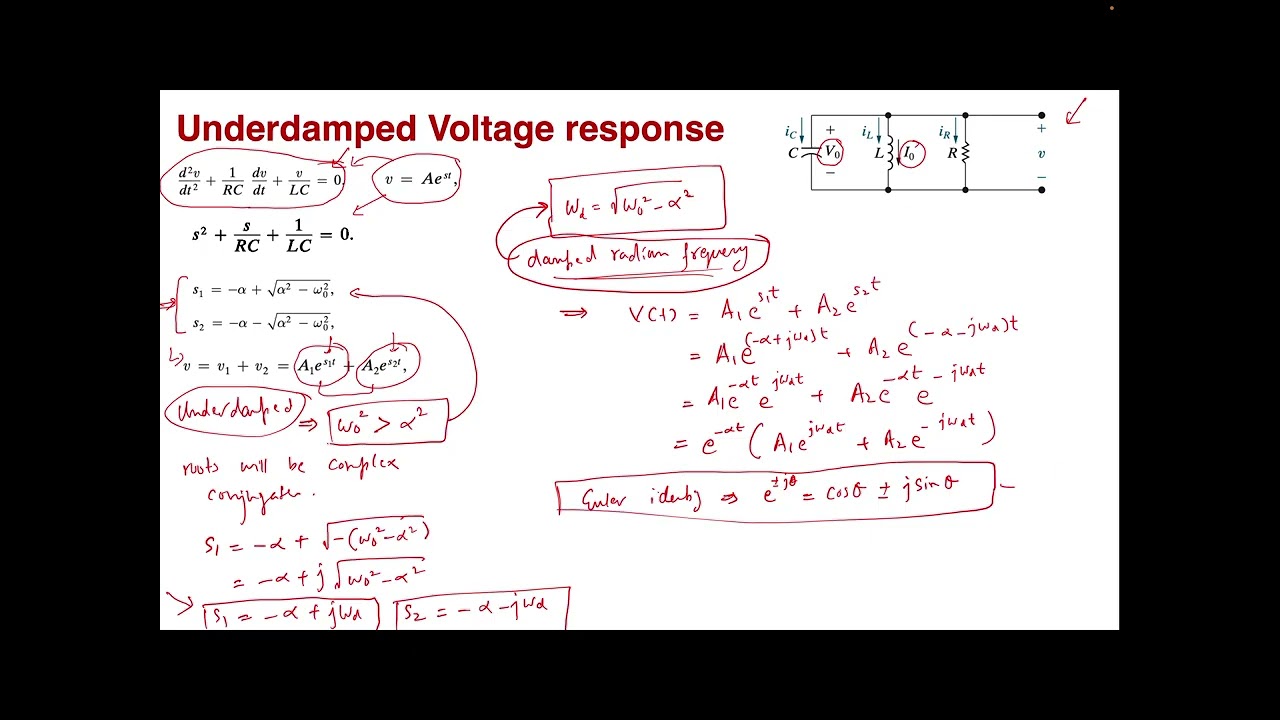 Underdamped Voltage response
d²v/dt² + 1/RC dv/dt + v/LC = 0.
v = Ae^{st},
s² + s/RC + 1/LC = 0.
s₁ = −α + √(α² − ω₀²),
s₂ = −α − √(α² − ω₀²),
v = v₁ + v₂ = A₁e^{s₁t} + A₂e^{s₂t},
Underdamped ⇒ ω₀² > α²
roots will be complex
conjugates.
s₁ = −α + √(−(ω₀² − α²))
= −α + j √(ω₀² − α²)
s₁ = −α + jω_d
s₂ = −α − jω_d
ω_d = √(ω₀² − α²)
damped radian frequency
⇒ v(t) = A₁e^{s₁t} + A₂e^{s₂t}
= A₁e^{(−α + jω_d)t} + A₂e^{(−α − jω_d)t}
= A₁e^{−αt} e^{jω_dt} + A₂e^{−αt} e^{−jω_dt}
= e^{−αt} (A₁e^{jω_dt} + A₂e^{−jω_dt})
Euler identity ⇒ e^{±jθ} = cosθ ± j sinθ
i_C
+
i_L
i_R
+
C
V₀
L
I₀
R
v
−
−